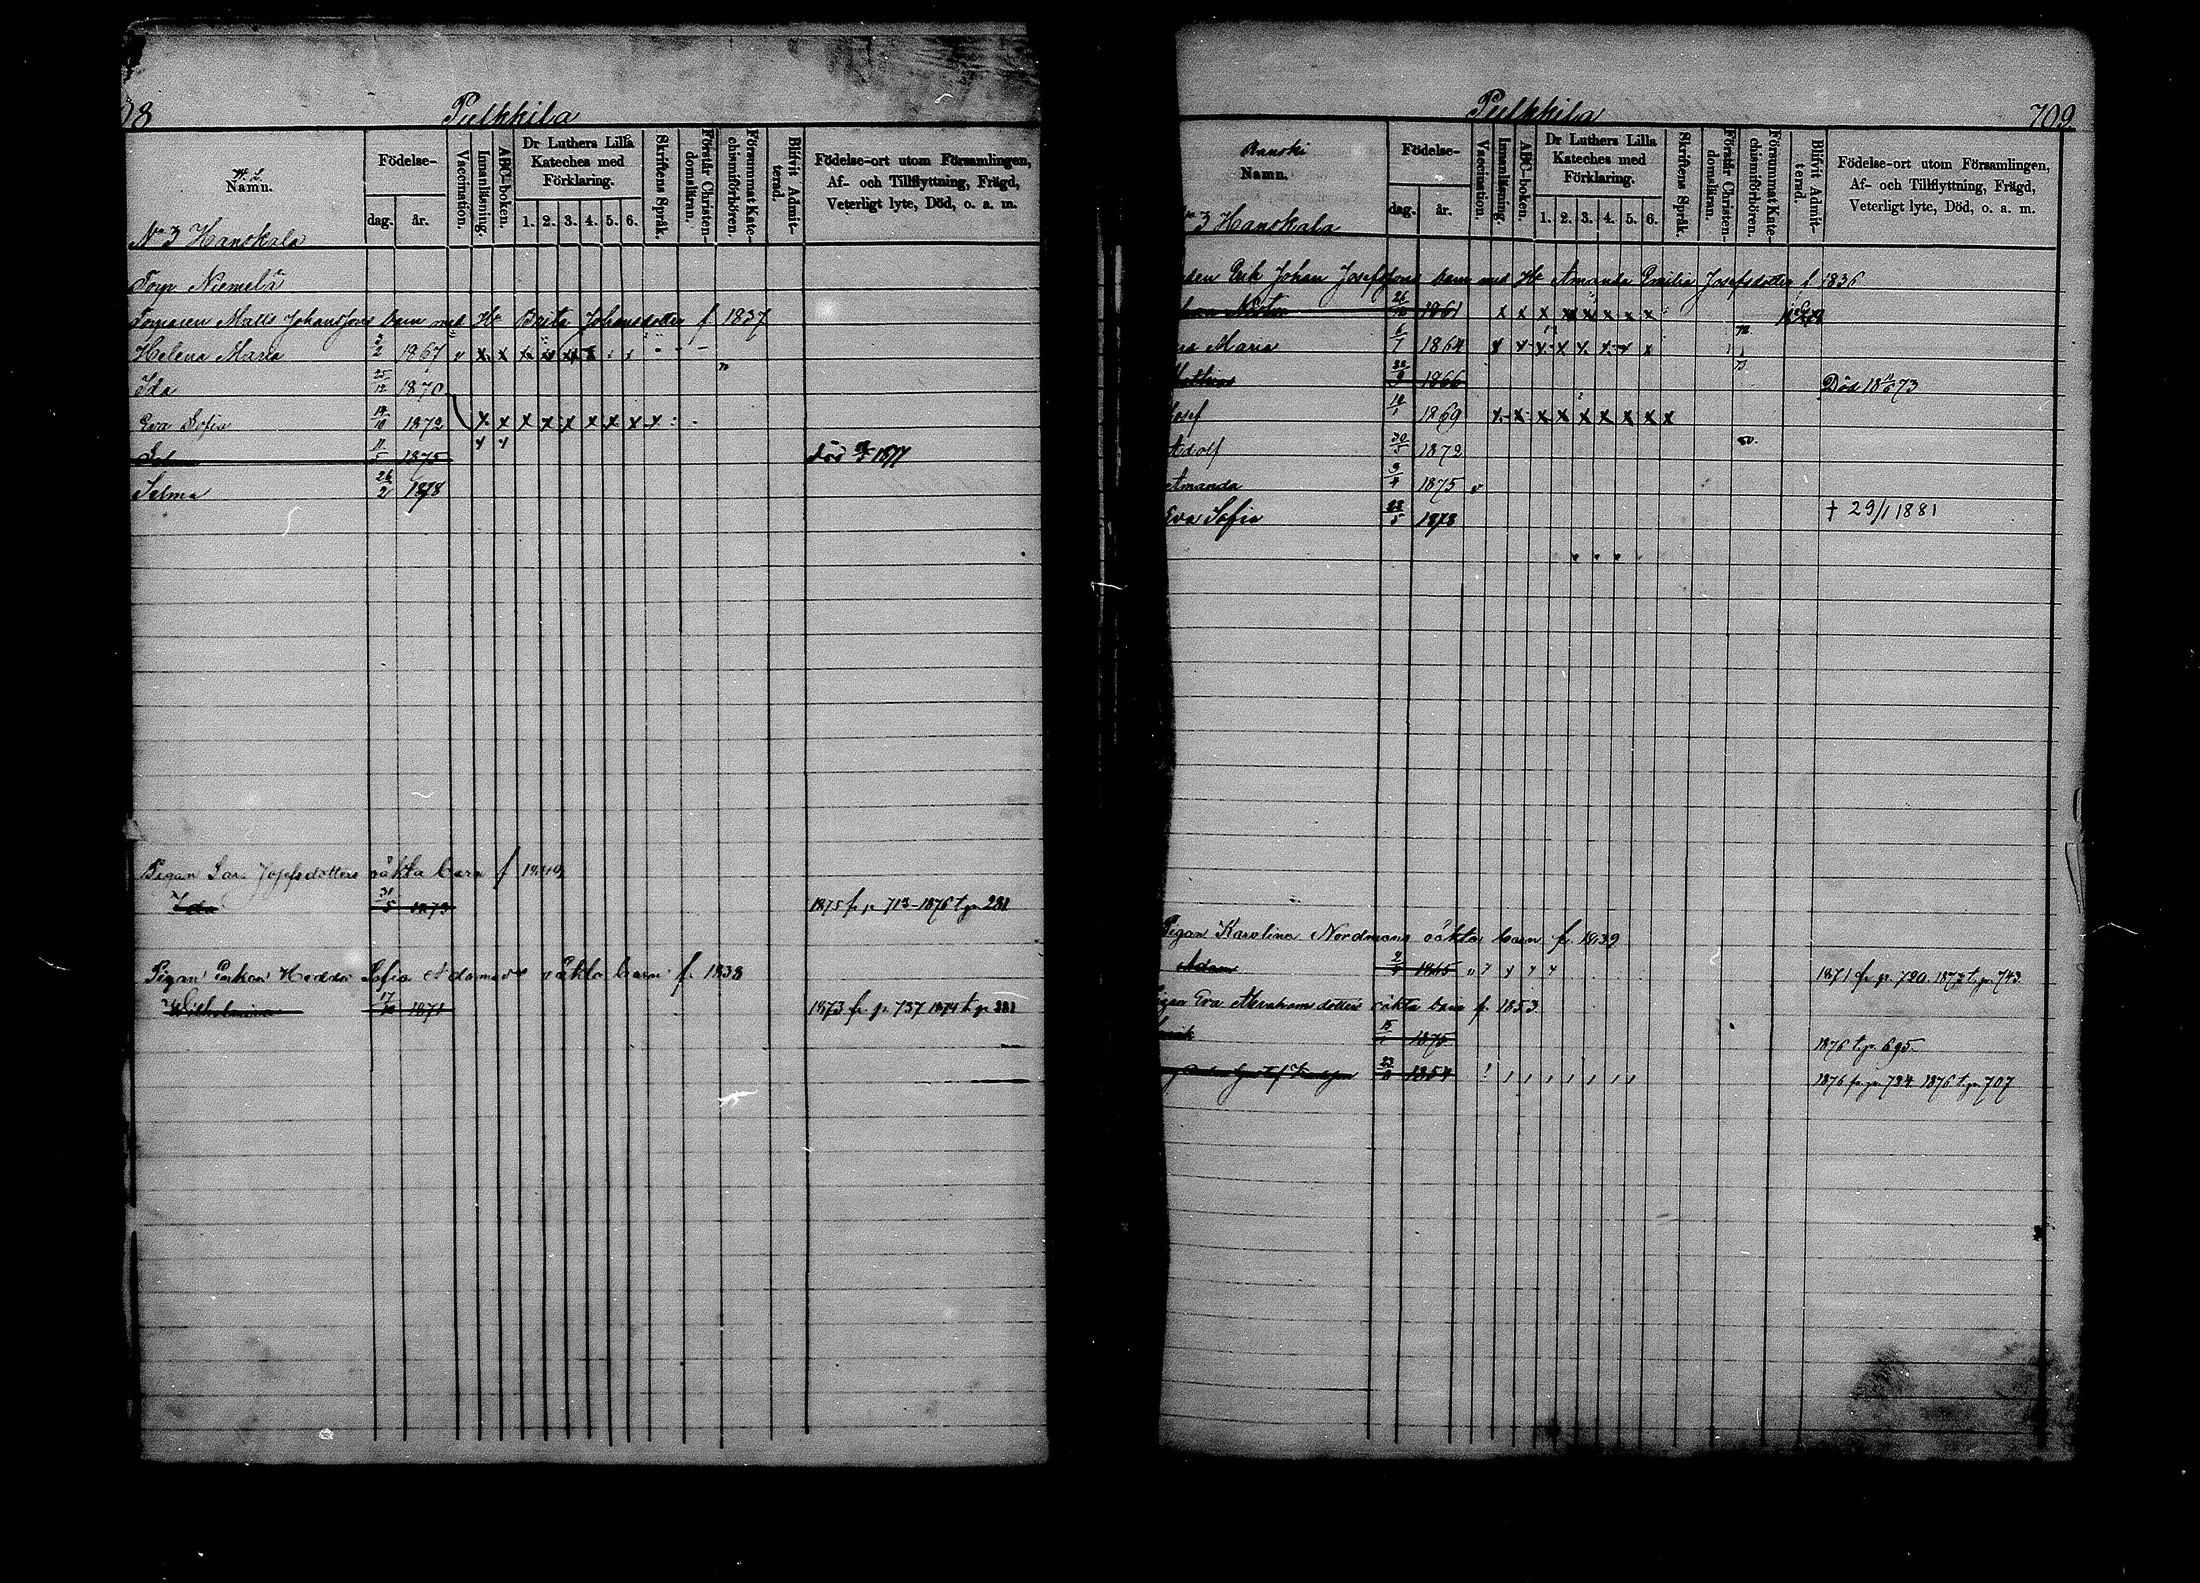 08 Pulkkila
Namn. Födelse- dag. år. Vaccination. Innanläsning. ABC-boken. Dr Luthers Lilla Kateches med Förklaring. 1. 2. 3. 4. 5. 6. Skriftens Språk. Förstår Christendomsläran. Försummat Katechismiförhören. Blifvit Admitterad. Födelse-ort utom Församlingen, Af- och Tillflyttning, Frägd, Veterligt lyte, Död, o. a. m.
No 3 Hanokala
Torp Niemelä
Torparen Matts Johansson Barn med H Brita Johansdotter f 1837
Helena Maria 2/2 1867 v x x x x x x
Ida 25/12 1870
Eva Sofia 14/10 1872 x x x x x x x x x
11/5 1875 död 1877
Selma 26/2 1878
Pigan Sara Josefsdotters oäkta barn f
Ida 31/5 1873 1875 fr p 713 - 1876 t. p 281
Pigan Enkan Hedda Sofia oäkta barn f. 1838
Wilhelmina 17/10 1871 1873 fr p. 737 1874 t. p 281
Pulkkila 709
Namn. Födelse- dag. år. Vaccination. Innanläsning. ABC-boken. Dr Luthers Lilla Kateches med Förklaring. 1. 2. 3. 4. 5. 6. Skriftens Språk. Förstår Christendomsläran. Försummat Katechismiförhören. Blifvit Admitterad. Födelse-ort utom Församlingen, Af- och Tillflyttning, Frägd, Veterligt lyte, Död, o. a. m.
No 3 Hanokala
Erik Johan Josefssons Barn med H Amanda Emilia Josefsdotter f 1836
26/10 1861 x x x x x x x x
Maria 6/7 1864 x x x x x x x x
1866 Död 73
Josef 1869 x x x x x x x x x
Adolf 30/5 1872
Amanda 3/4 1875 v
Eva Sofia 28/5 1878 † 29/1 1881
Pigan Karolina Nordmans oäkta barn f. 1839
Adam 1865 1871 fr. p. 720. 1872 t. p. 743
Pigan Eva Abrahamsdotters oäkta barn f. 1853
1875 1876 t. p. 695.
Gustaf 23/8 1854 1876 fr. p. 724 1876 t. p. 707